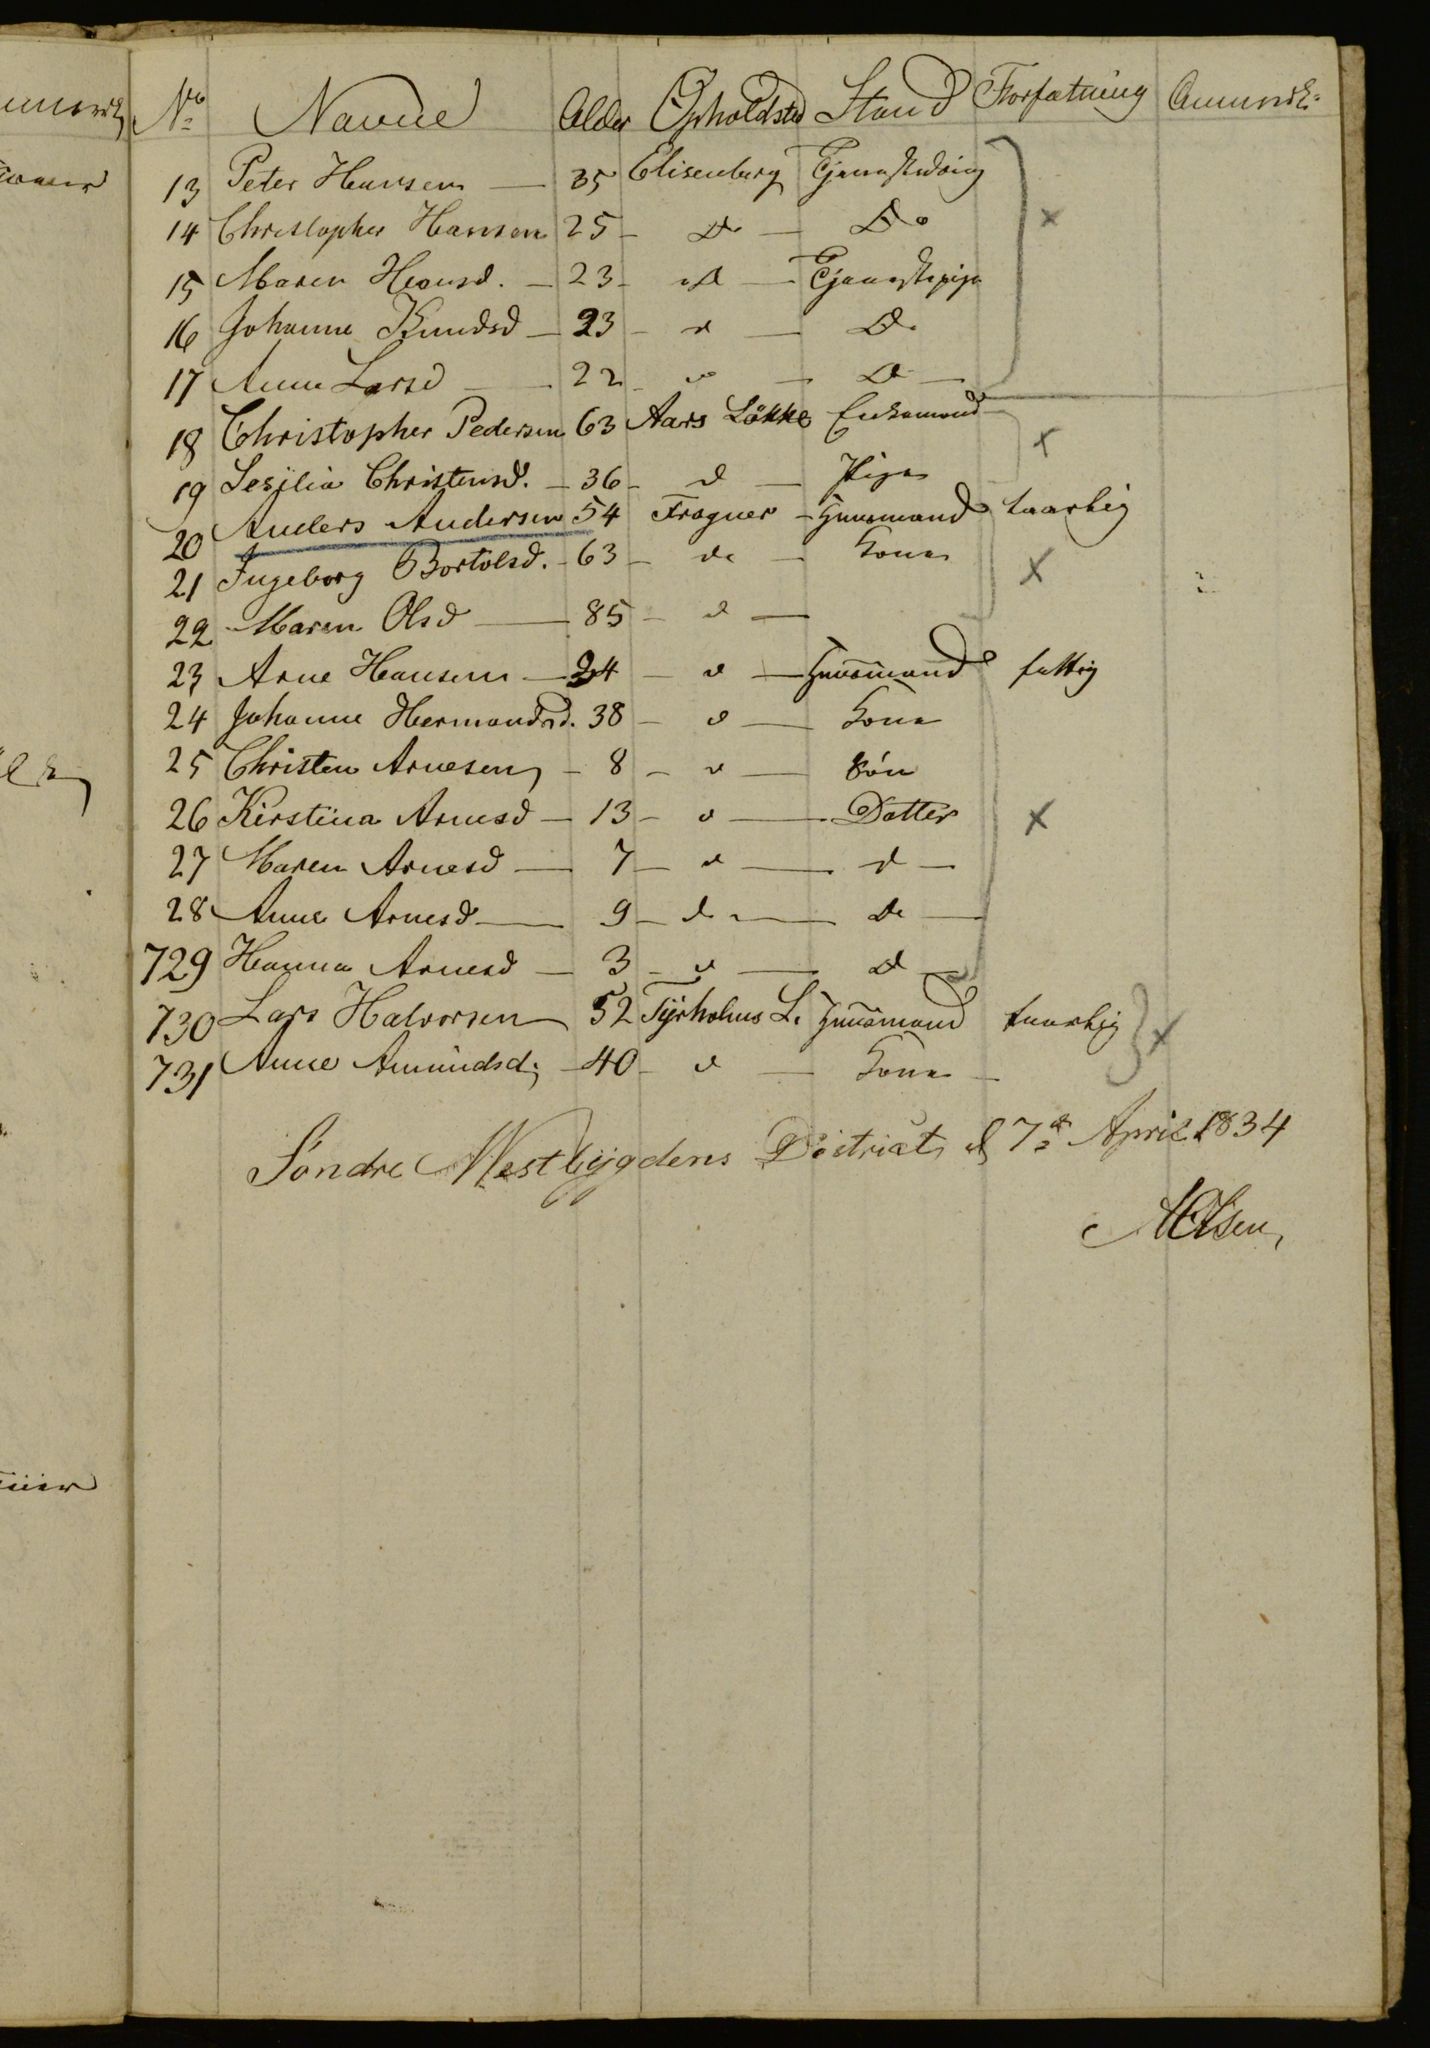 No Navne Alder Opholdsted Stand Forfatning Anmærk:
13 Peter Hansen — 35 Elisenberg Tjenestedräng
14 Christopher Hansen 25 — Do — Do
15 Maren Hansd. — 23 — d — Tjenestepige
16 Johanne Knudsd — 23 — d — Do
17 Anne Larsd — 22 — d — D —
18 Christopher Pedersen 63 Aars Lökke Enkemand
19 Sesilia Christensd. — 36 — d — Pige
20 Anders Andersen 54 Frogner — Huusmand taarlig
21 Ingeborg Bortolsd. — 63 — do — Kone
22 Maren Olsd — 85 — d —
23 Arne Hansen — 34 — d — Huusmand fattig
24 Johanne Hermandsd. 38 — d — Kone
25 Christen Arnesen — 8 — d — Sön
26 Kirstina Arnesd — 13 — d — Datter
27 Maren Arnesd — 7 — d — d —
28 Anne Arnesd — 9 — do — Do —
729 Hanna Arnesd — 3 — d — D —
730 Lars Halvorsen 52 Tyrholms L. Huusmand taarlig
731 Anne Amundsd; — 40 — d — Kone —
Söndre Westbygdens District d 7de April 1834
AOlsen,